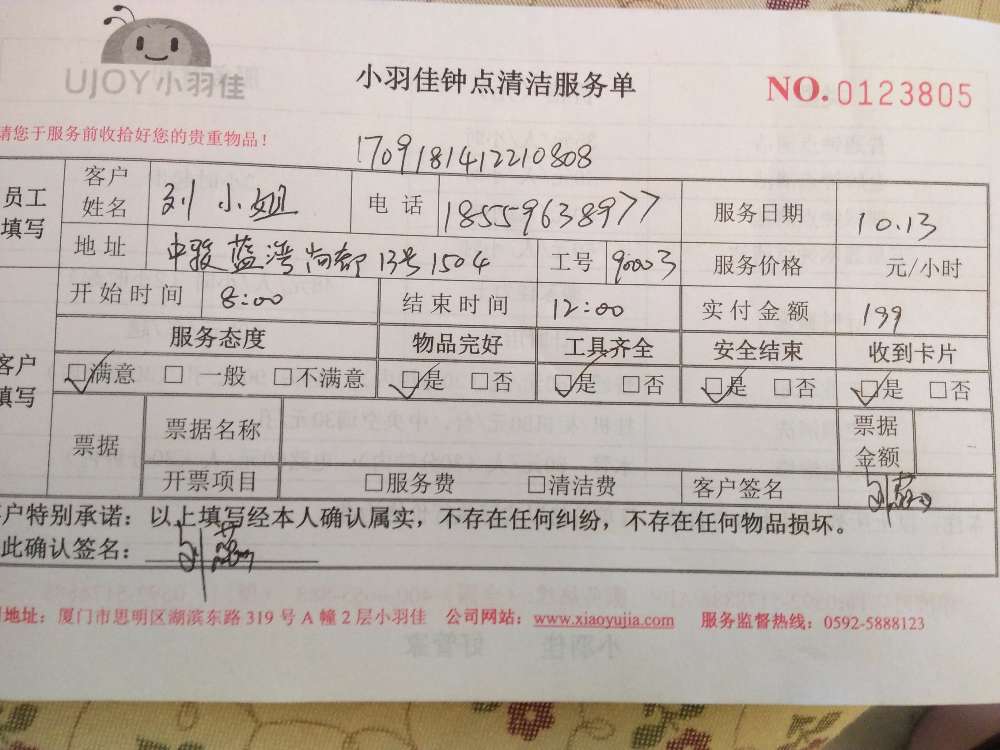 UJOY小羽佳
小羽佳钟点清洁服务单
NO.0123805
请您于服务前收拾好您的贵重物品！
1709181412210808
员工填写 客户姓名 刘小姐 电话 18559638977 服务日期 10.13
地址 中骏蓝湾尚都13号1504 工号 90003 服务价格 元/小时
开始时间 8:00 结束时间 12:00 实付金额 199
客户填写 服务态度 物品完好 工具齐全 安全结束 收到卡片
☑满意 □一般 □不满意 ☑是 □否 ☑是 □否 ☑是 □否 ☑是 □否
票据 票据名称 票据金额
开票项目 □服务费 □清洁费 客户签名
客户特别承诺：以上填写经本人确认属实，不存在任何纠纷，不存在任何物品损坏。
此确认签名：
地址：厦门市思明区湖滨东路319号A幢2层小羽佳 公司网站：www.xiaoyujia.com 服务监督热线：0592-5888123